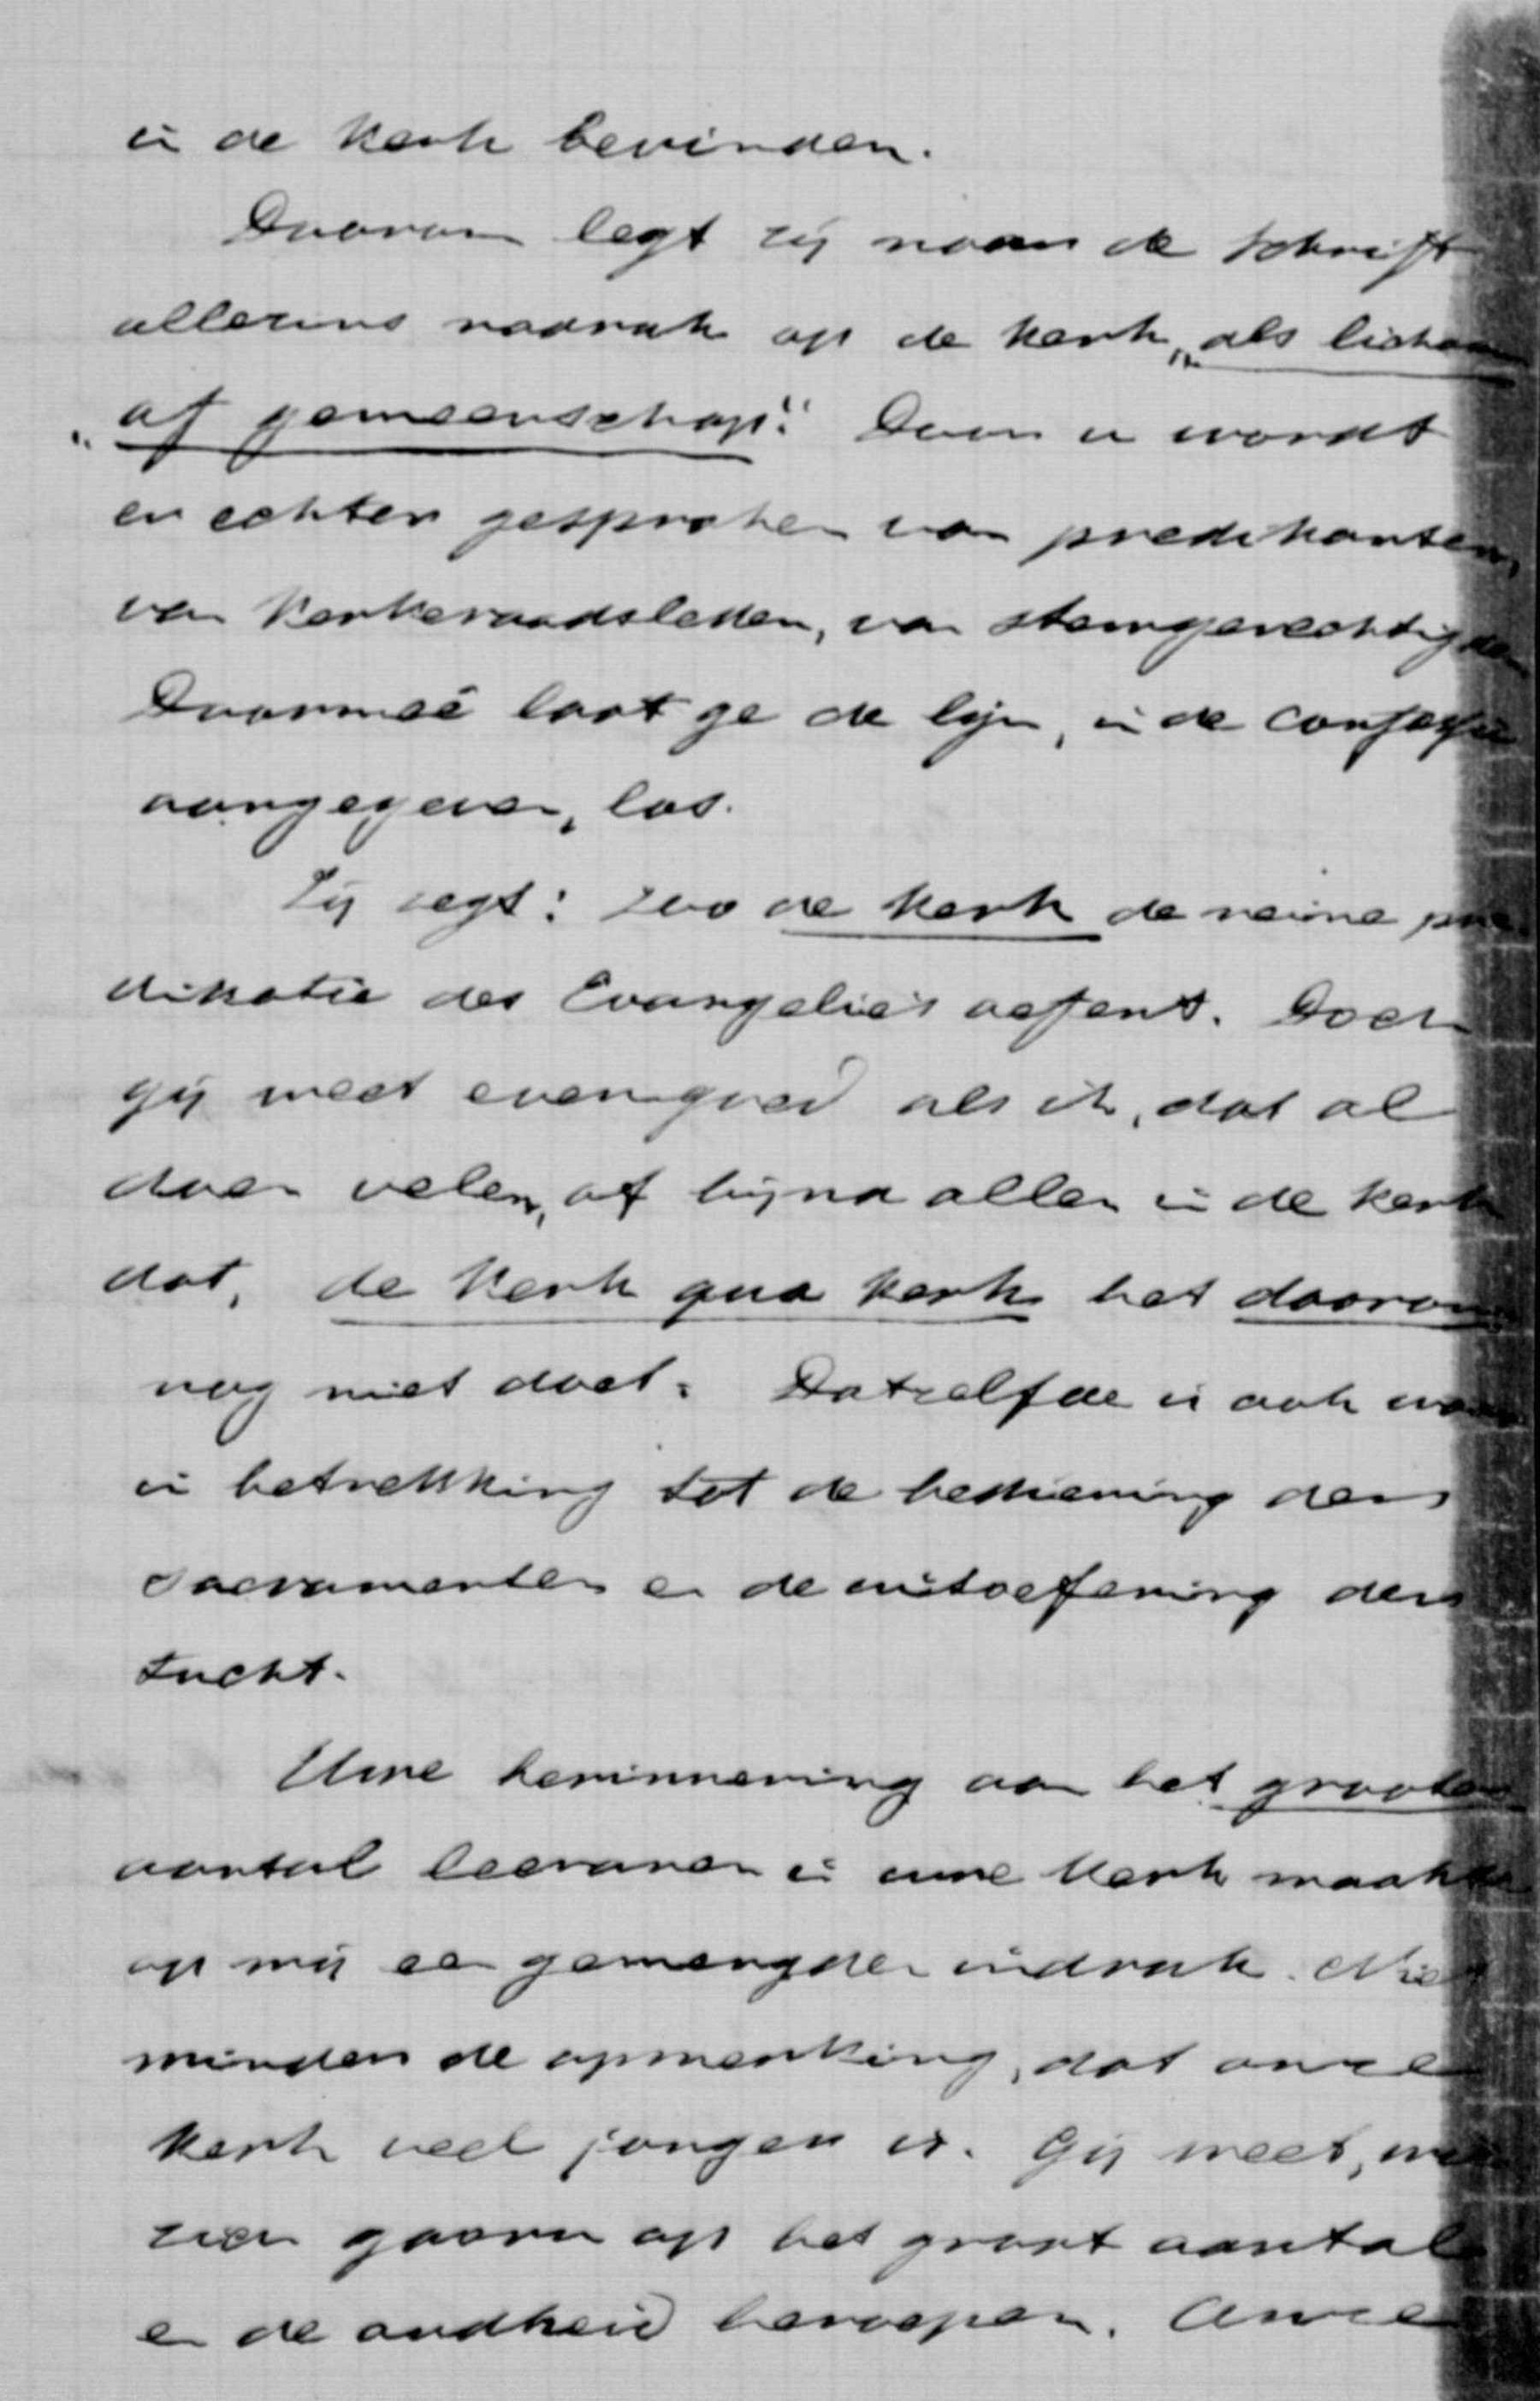 in de kerk bevinden.
Daarom legt zij naar de Schrift
allereerst nadruk op de kerk, "als lichaam
"of gemeenschap". Door u wordt
er echter gesproken van predikanten,
van kerkeraadsleden, van stemgerechtigden
Daarmeê laat ge de lijn, in de Confessie
aangegeven, los.
Zij zegt: zoo de kerk de reine pre
dikatie des Evangelie's oefent. Doch
gij weet evengoed als ik, dat al
doen velen, of bijna allen in de kerk
dat, de kerk qua kerk het daarom
nog niet doet. Datzelfde is ook waar
in betrekking tot de bediening der
Sacramenten en de uitoefening der
tucht.
Uwe herinnering aan het groote
aantal leeraren in uwe kerk maakte
op mij een gemengden indruk. Niet
minder de opmerking, dat onze
kerk veel jonger is. Gij weet, we
zien gaarn op het groot aantal
en de oudheid beroepen. Onze